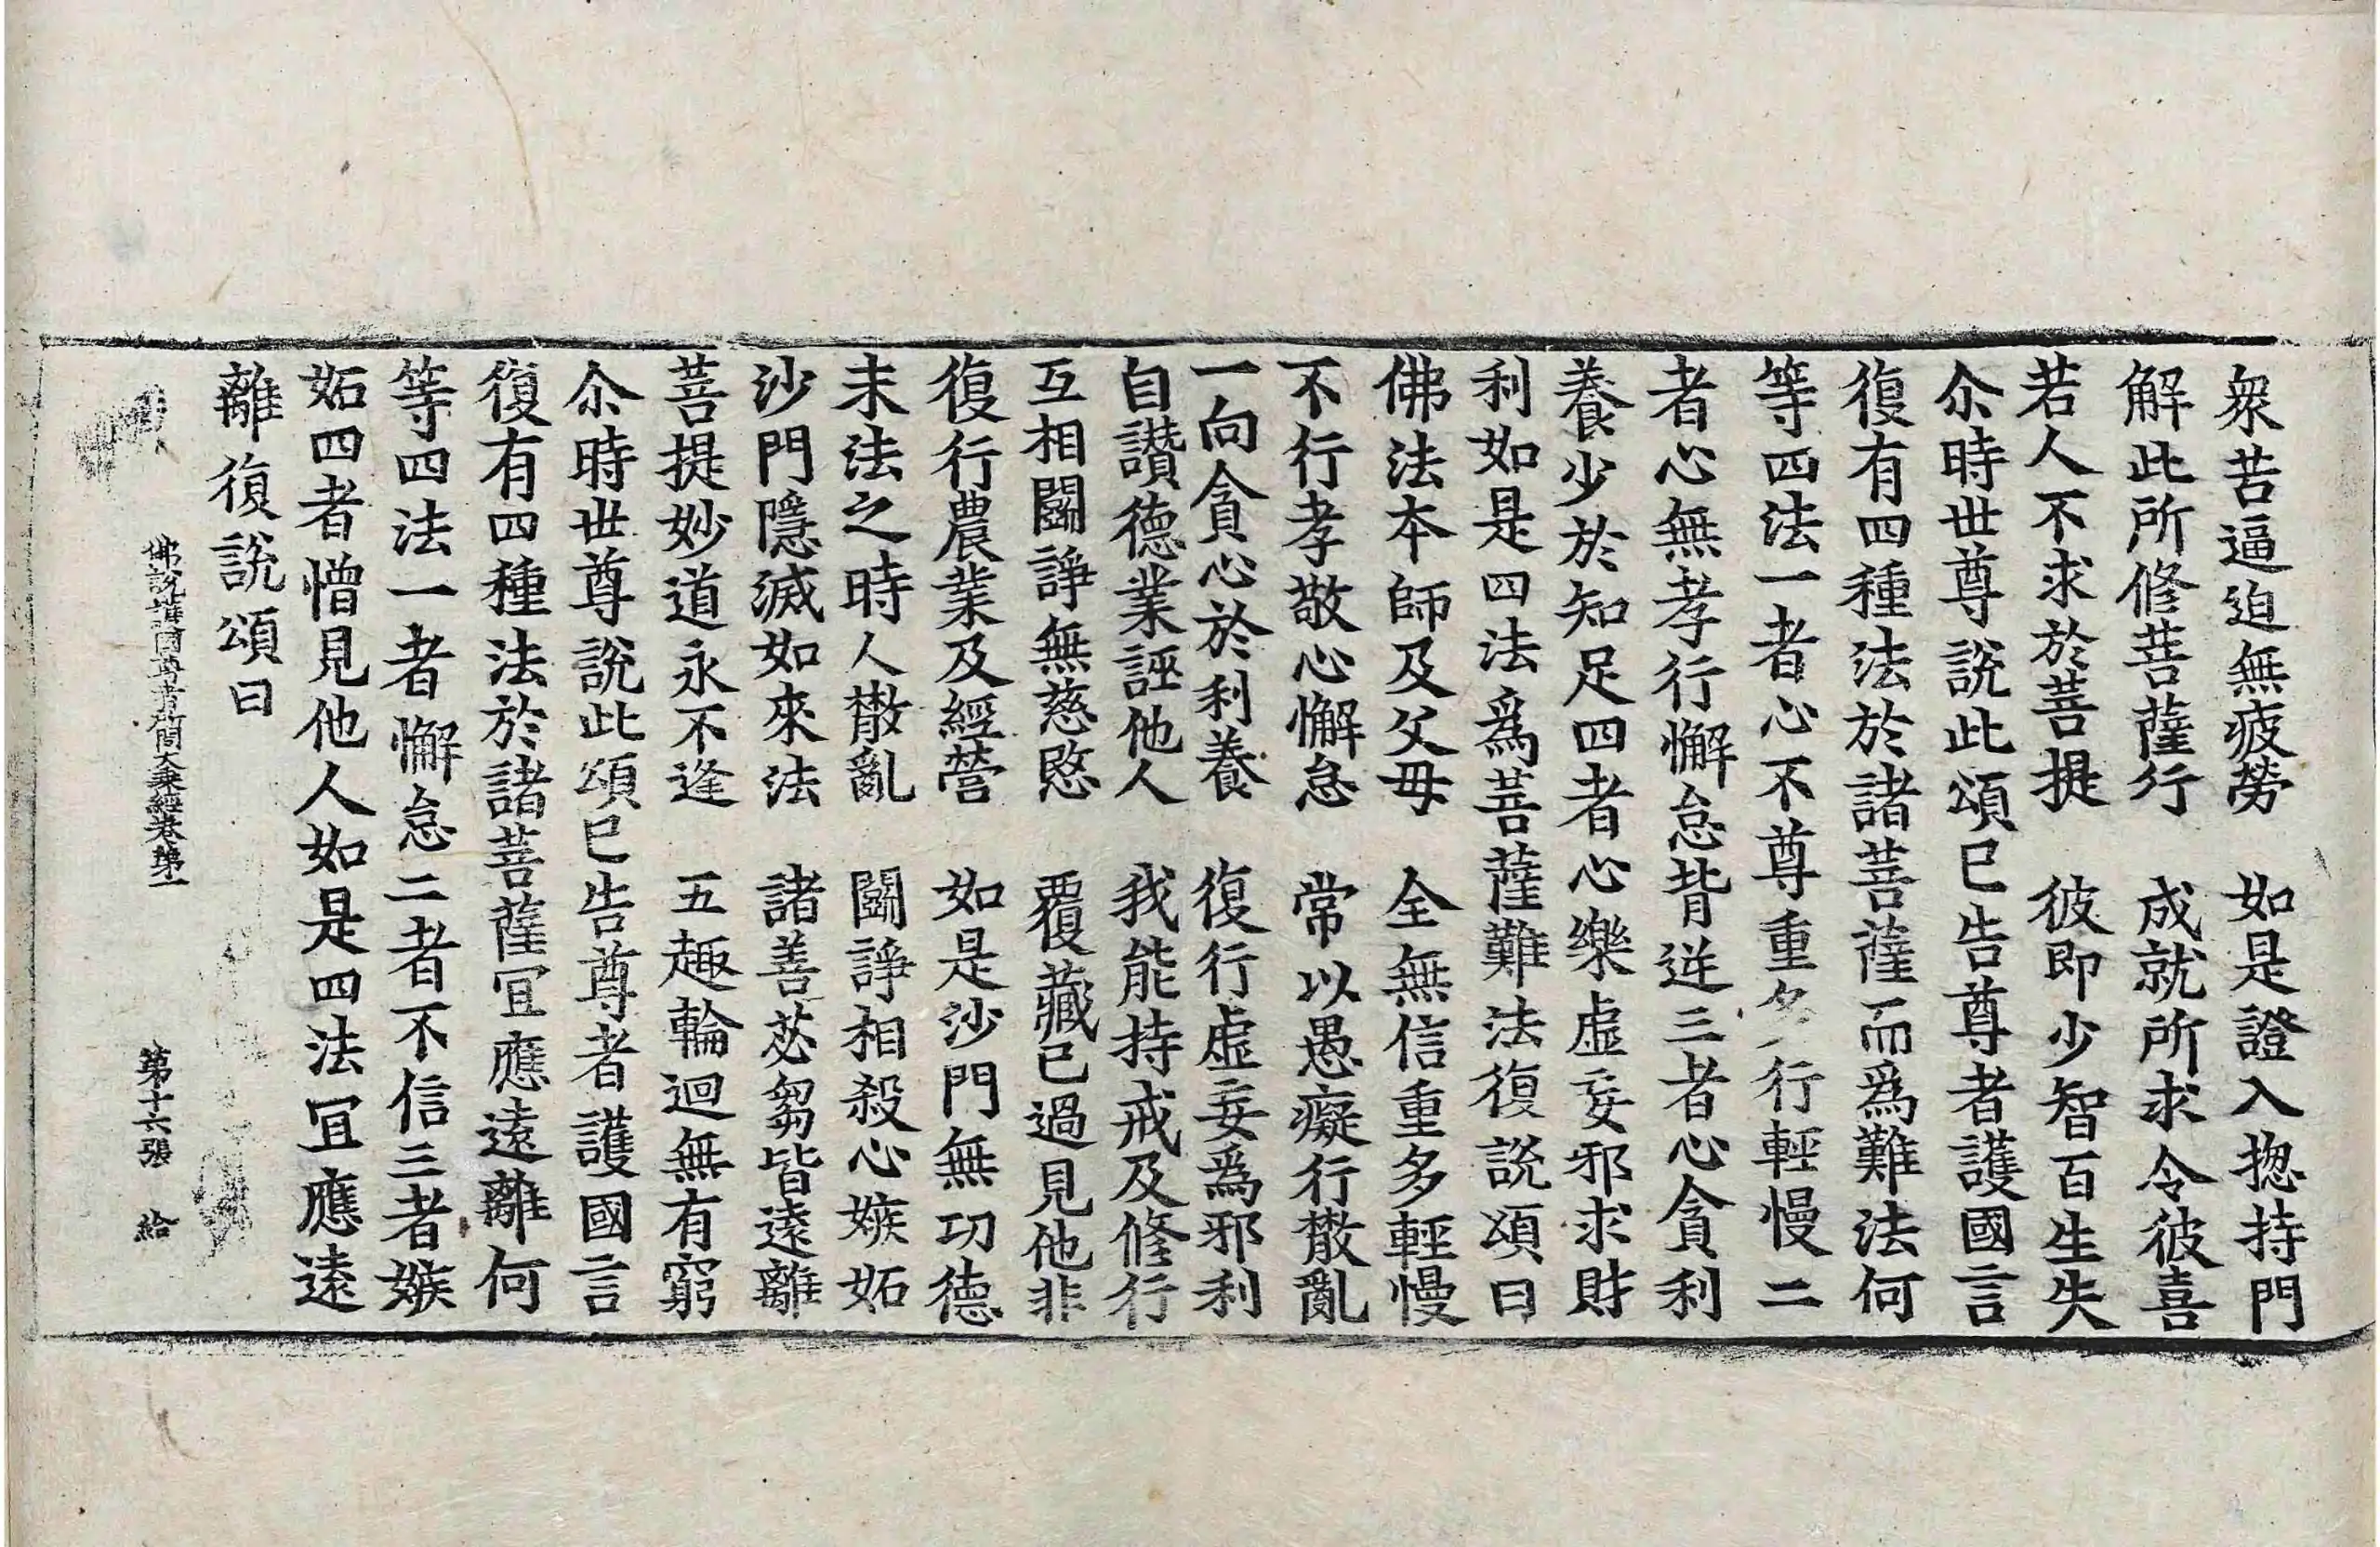 衆苦逼迫無疲勞　如是證入揔持門
解此所修菩薩行　成就所求令彼喜
若人不求於菩提　彼即少智百生失
尒時世尊說此頌已告尊者護國言
復有四種法於諸菩薩而爲難法何
等四法一者心不尊重多行輕慢二
者心無孝行懈怠背逆三者心貪利
養少於知足四者心樂虛妄邪求財
利如是四法爲菩薩難法復說頌曰
佛法本師及父母　全無信重多輕慢
不行孝敬心懈怠　常以愚癡行散亂
一向貪心於利養　復行虛妄爲邪利
自讚德業誣他人　我能持戒及修行
互相鬭諍無慈愍　覆藏已過見他非
復行農業及經營　如是沙門無功德
末法之時人散亂　鬭諍相殺心嫉妬
沙門隱滅如來法　諸善苾芻皆遠離
菩提妙道永不逢　五趣輪迴無有窮
尒時世尊說此頌已告尊者護國言
復有四種法於諸菩薩冝應遠離何
等四法一者懈怠二者不信三者嫉
妬四者憎見他人如是四法冝應遠
離復說頌曰
佛說護國尊者所問大乘經卷第一　第十六張　給